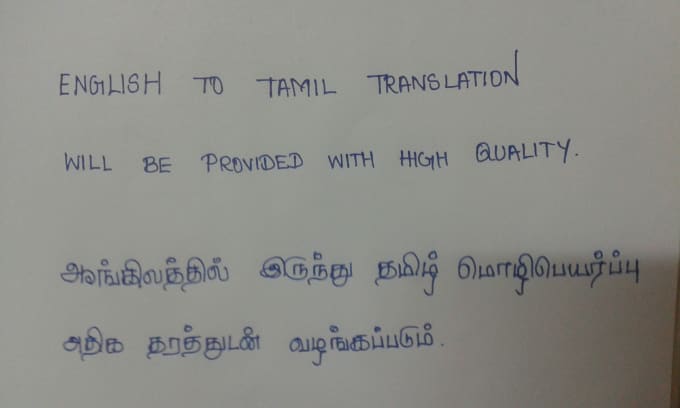 ENGLISH TO TAMIL TRANSLATION
WILL BE PROVIDED WITH HIGH QUALITY.
அங்கிலத்தில் இருந்து தமிழ் மொழிபெயர்ப்பு
அதிக தரத்துடன் வழங்கப்படும்.